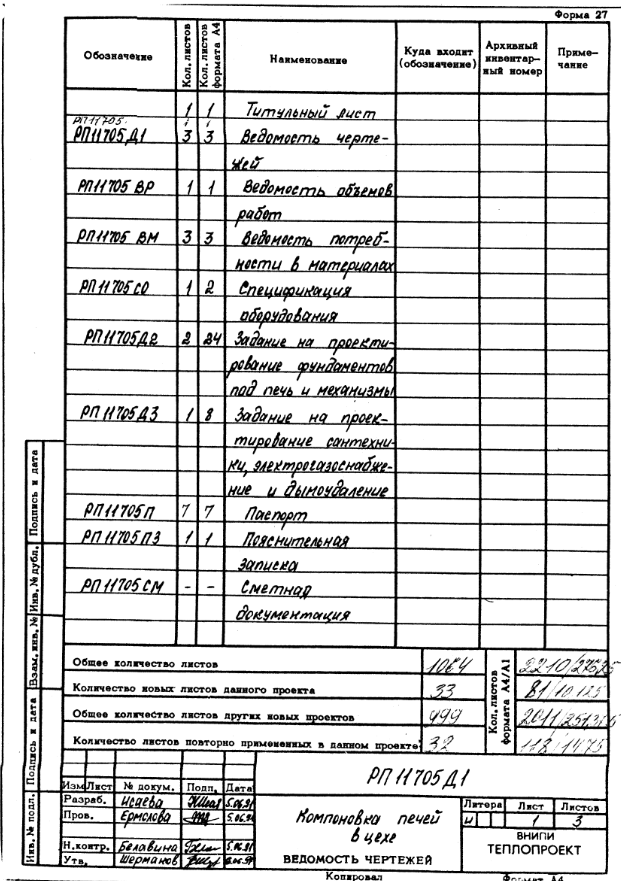 Форма 27
Обозначение Кол. листов Кол. листов формата А4 Наименование Куда входит (обозначение) Архивный инвентарный номер Примечание
1 1 Титульный лист
РП11705
РП11705 Д1 3 3 Ведомость черте-
жей
РП11705 ВР 1 1 Ведомость объемов
работ
РП11705 ВМ 3 3 Ведомость потреб-
ности в материалах
РП11705 СО 1 2 Спецификация
оборудования
РП11705 Д2 2 24 Задание на проекти-
рование фундаментов
под печь и механизмы
РП11705 Д3 1 8 Задание на проек-
тирование сантехни-
ки, электрогазоснабже-
ние и дымоудаление
РП11705 П 7 7 Паспорт
РП11705 ПЗ 1 1 Пояснительная
записка
РП11705 СМ - - Сметная
документация
Общее количество листов 1064
Кол. листов формата А4/А1
Количество новых листов данного проекта 33 81/10.125
Общее количество листов других новых проектов 999
Количество листов повторно примененных в данном проекте 32 118/14.75
РП 11705 Д1
Изм Лист № докум. Подп. Дата
Разраб. Исаева 5.06.91
Пров. Ермолова 5.06.91
Н.контр. Белавина 5.06.91
Утв. Шерманов
Компоновка печей
в цехе
ВЕДОМОСТЬ ЧЕРТЕЖЕЙ
Литера Лист Листов
и 1 3
ВНИПИ
ТЕПЛОПРОЕКТ
Копировал Формат А4
Инв. № подл. Подпись и дата Взам. инв. № Инв. № дубл. Подпись и дата